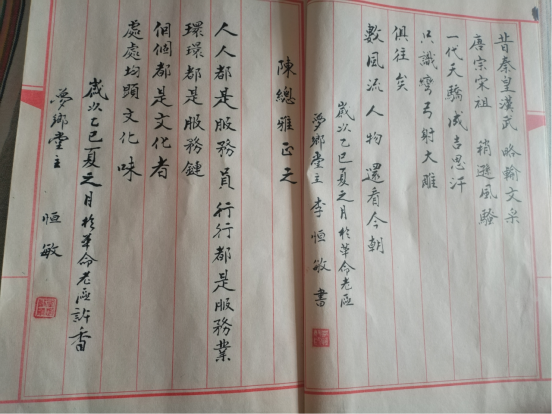 昔秦皇漢武 略輸文采
唐宗宋祖 稍遜風騷
一代天驕成吉思汗
只識彎弓射大雕
俱往矣
數風流人物 還看今朝
歲次乙巳夏之月於革命老區
夢鄉堂主 李恒敏 書
陳總雅正之
人人都是服務員 行行都是服務業
環環都是服務鏈
個個都是文化者
處處均顯文化味
歲次乙巳夏之月於革命老區訴香
夢鄉堂主 恒敏